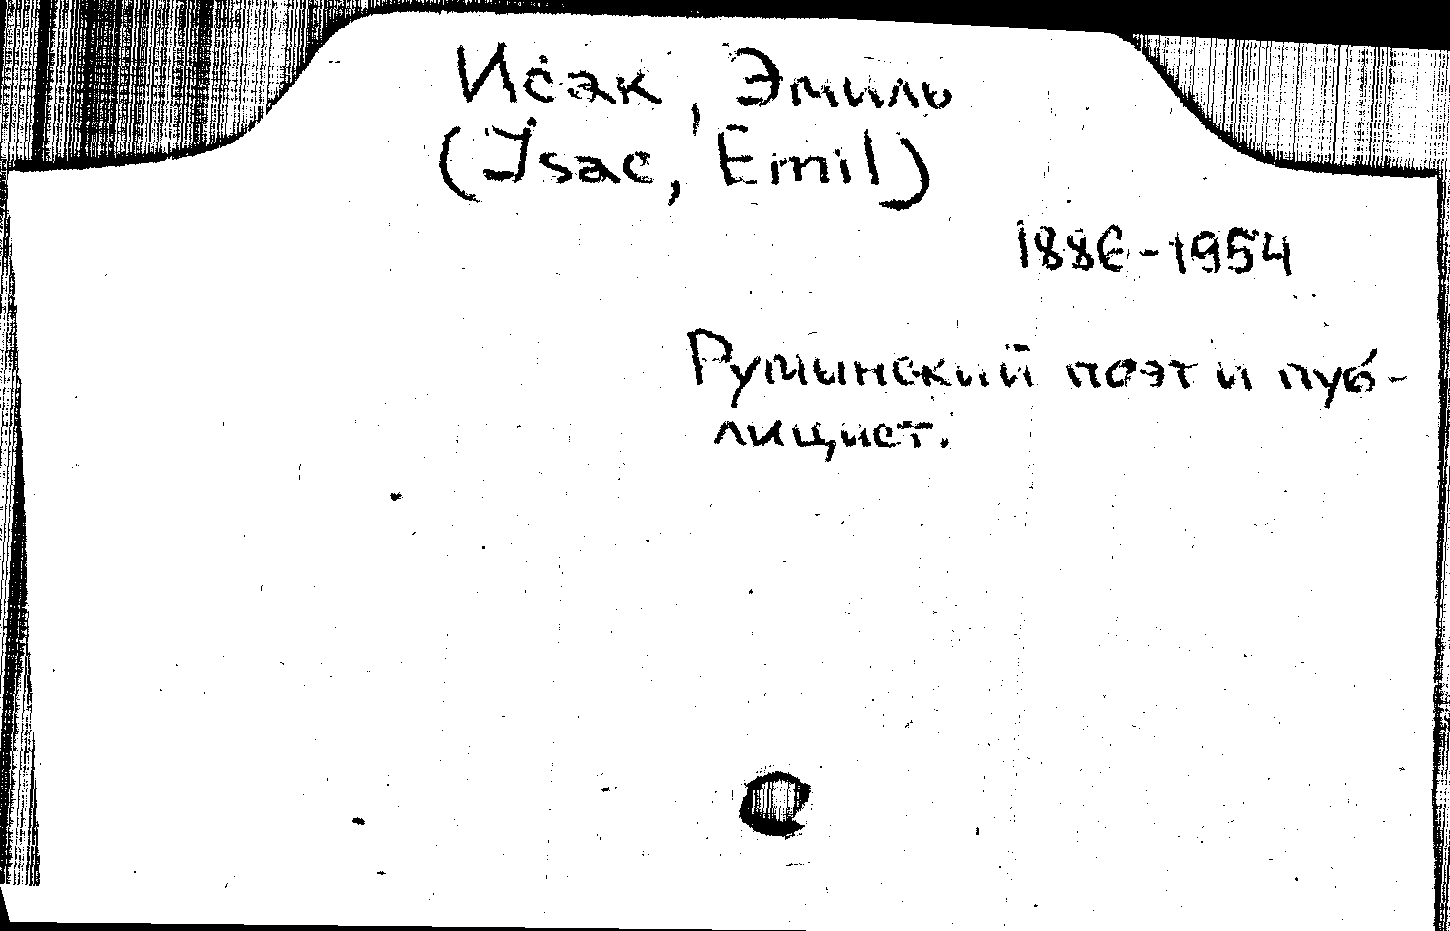 Исак, Эмиль
(Isac, Emil)
1886-1954
Румынский поэт и пуб-
лицист.